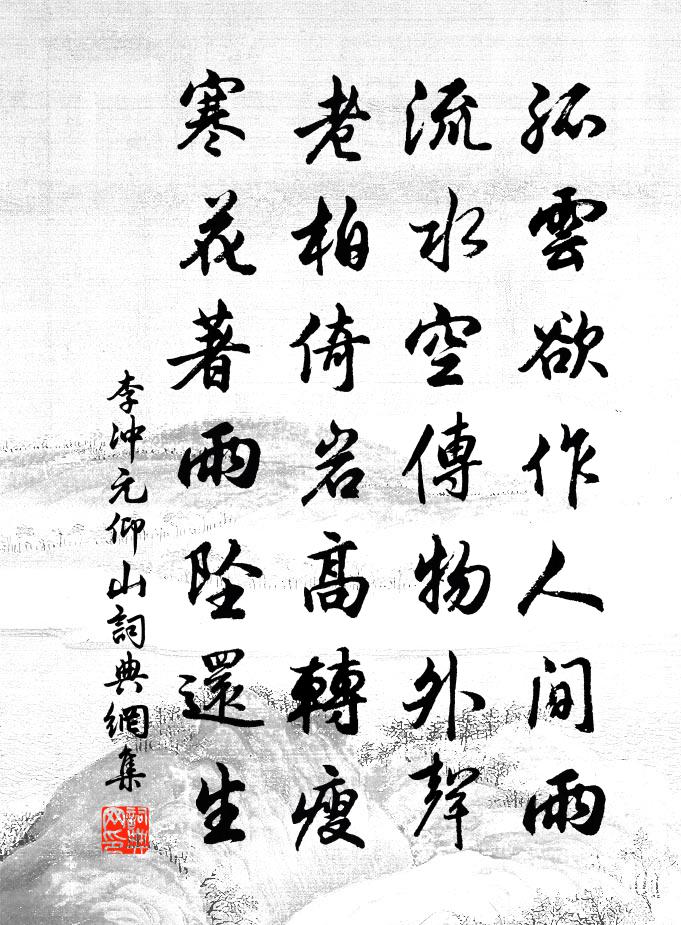 孤雲欲作人间雨
流水空傳物外聲
老柏倚岩高轉瘦
寒花著雨墜還生
李沖元仰山詞典網集
詞典网集